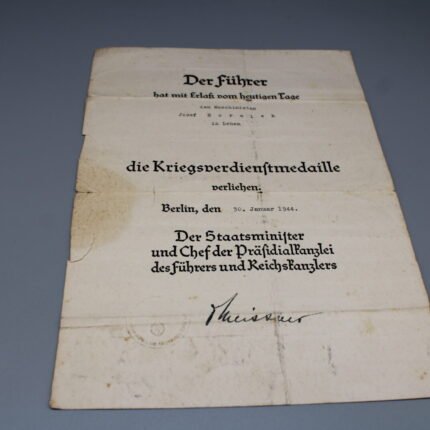 Der Führer
hat mit Erlaß vom heutigen Tage
dem Maschinisten
Josef
in Leben
die Kriegsverdienstmedaille
verliehen.
Berlin, den 30. Januar 1944.
Der Staatsminister
und Chef der Präsidialkanzlei
des Führers und Reichskanzlers
Meissner